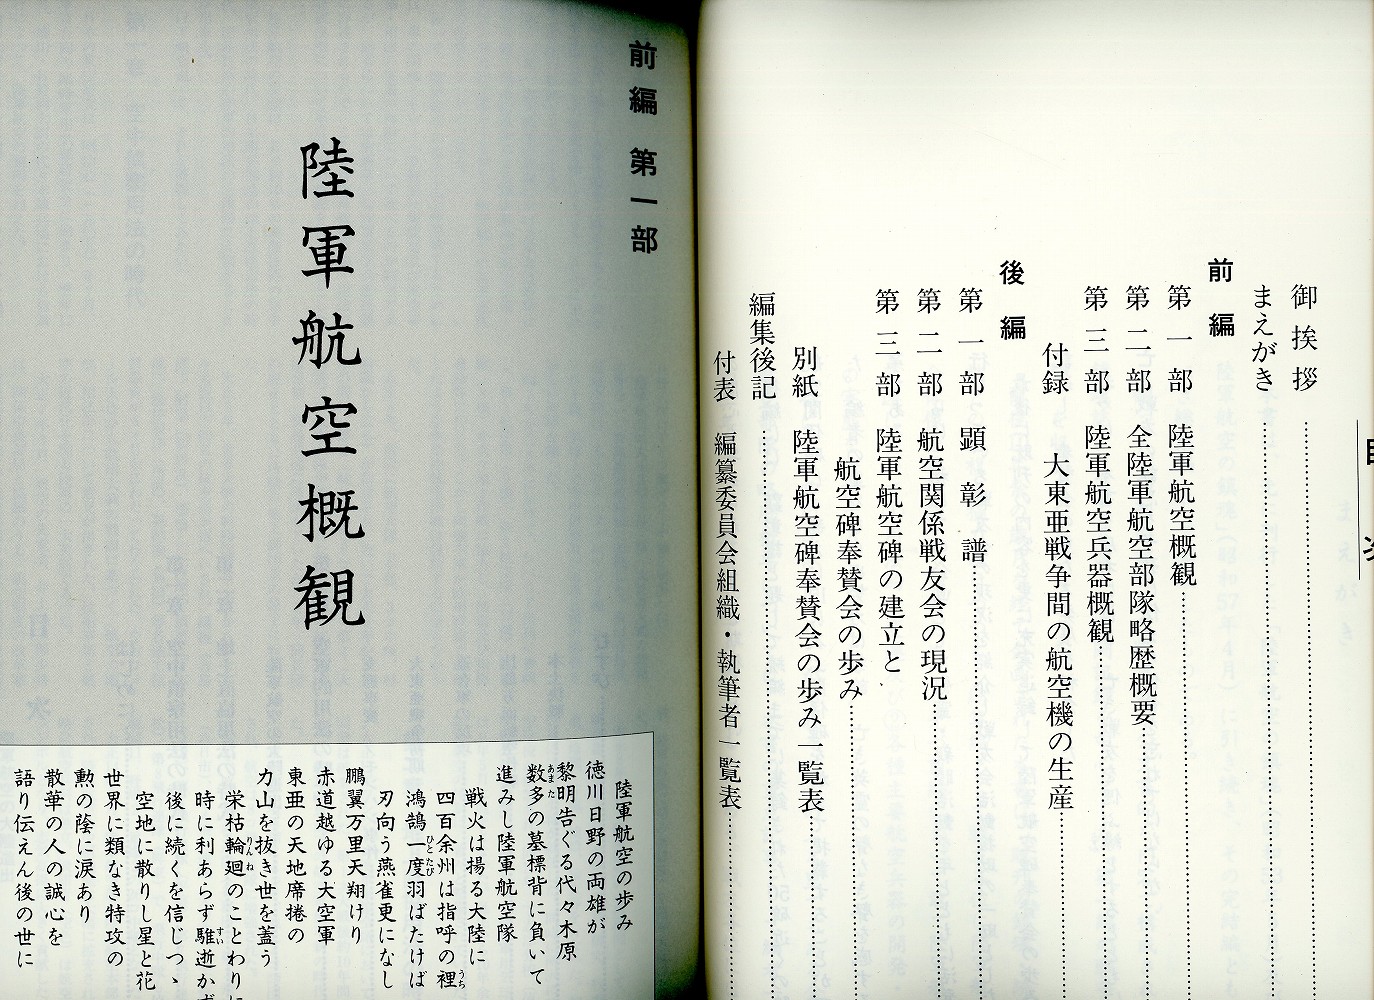 目次
御挨拶
まえがき
前編
第一部 陸軍航空概観
第二部 全陸軍航空部隊略歴概要
第三部 陸軍航空兵器概観
付録 大東亜戦争間の航空機の生産
後編
第一部 顕彰譜
第二部 航空関係戦友会の現況
第三部 陸軍航空碑の建立と
航空碑奉賛会の歩み
別紙 陸軍航空碑奉賛会の歩み一覧表
編集後記
付表 編纂委員会組織・執筆者一覧表
前編 第一部
陸軍航空概観
陸軍航空の歩み
徳川日野の両雄が
黎明告ぐる代々木原
数多の墓標背に負いて
進みし陸軍航空隊
戦火は揚る大陸に
四百余州は指呼の裡
鴻鵠一度羽ばたけば
刃向う燕雀更になし
鵬翼万里天翔けり
赤道越ゆる大空軍
東亜の天地席捲の
力山を抜き世を蓋う
栄枯輪廻のことわりに
時に利あらず騅逝かず
後に続くを信じつゝ
空地に散りし星と花
世界に類なき特攻の
勲の蔭に涙あり
散華の人の誠心を
語り伝えん後の世に